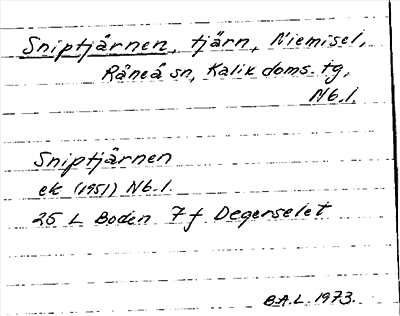 Sniptjärnen, tjärn, Niemisel,
Råneå sn, Kalix doms. tg,
Nb.l.
Sniptjärnen
ek (1951) Nb.l.
25 L Boden 7f Degerselet
B.A.L. 1973.